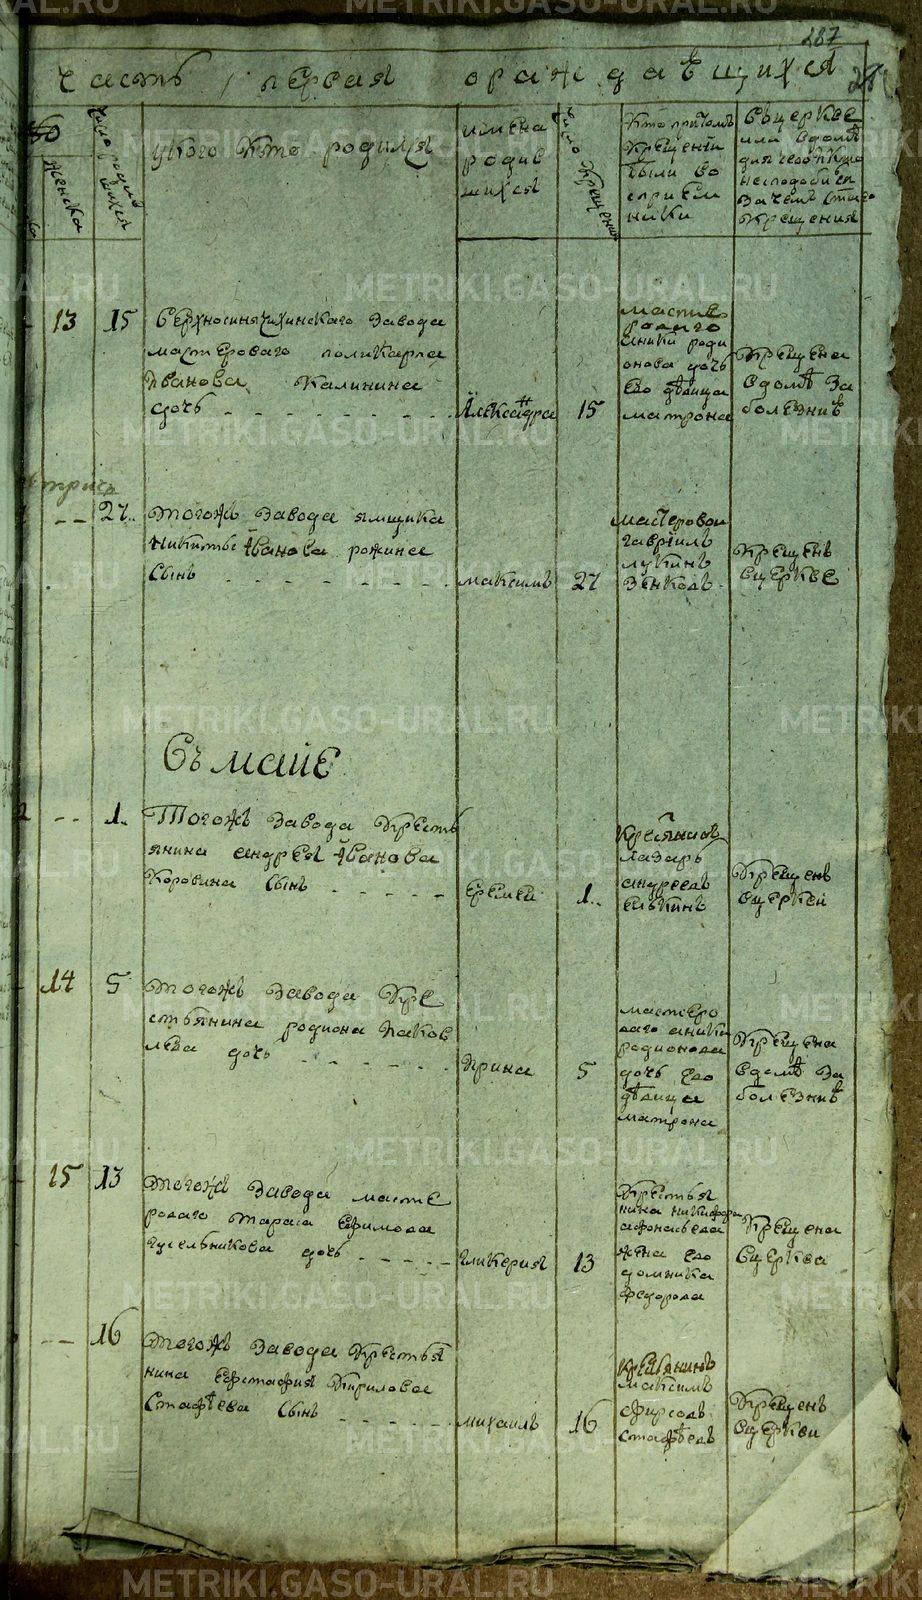 287
часть первая ораждающихся
женска
число родившихся
укого кто родился
имена
родив
шихся
число крещения
кто притомъ
крещенiи
были во
сприем
ники
въцеркве
или вдомѣ
крещения
13 15 верхносинячихинскаго завода
мастероваго поликарпа
iванова калинина
дочь
Александра
15
мастеро
ваго
аники роди
онова дочь
ево дѣвица
матрона
крещена
вдомѣ за
болезнiе
27 тогожъ завода ямщика
никиты iванова рожина
сынъ
максимъ
27
мастеровои
гаврiилъ
лукинъ
зенковъ
крещенъ
вцеркве
Въ маiе
1 Тогожъ завода кресть
янина андрея iванова
коровина сынъ
еремеи
1
крестьянинъ
лазарь
андреевъ
елькинъ
крещенъ
вцеркви
14 5 тогожъ завода кре
стьянина родиона яков
лева дочь
ирина
5
мастеро
ваго аники
родионова
дочь ево
дѣвица
матрона
крещена
вдомѣ за
болезнiе
15 13 тогожъ завода масте
роваго тараса ефимова
гусельникова дочь
гликерия
13
крестья
нина никифора
афонасьева
жена ево
домника
федорова
крещена
вцеркве
16 тогожъ завода крестья
нина евстафия кирилова
стафѣева сынъ
михаилъ
16
крестьянинъ
максимъ
фирсовъ
стафѣевъ
крещенъ
вцеркви
METRIKI.GASO-URAL.RU